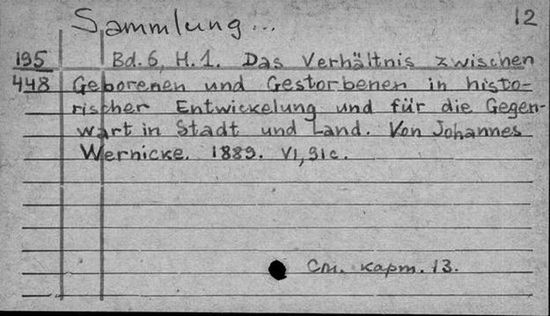 Sammlung... 12
195 Bd. 6, H. 1. Das Verhältnis zwischen
448 Geborenen und Gestorbenen in histo-
rischer Entwickelung und für die Gegen-
wart in Stadt und Land. Von Johannes
Wernicke. 1889. VI, 91 c.
См. карт. 13.